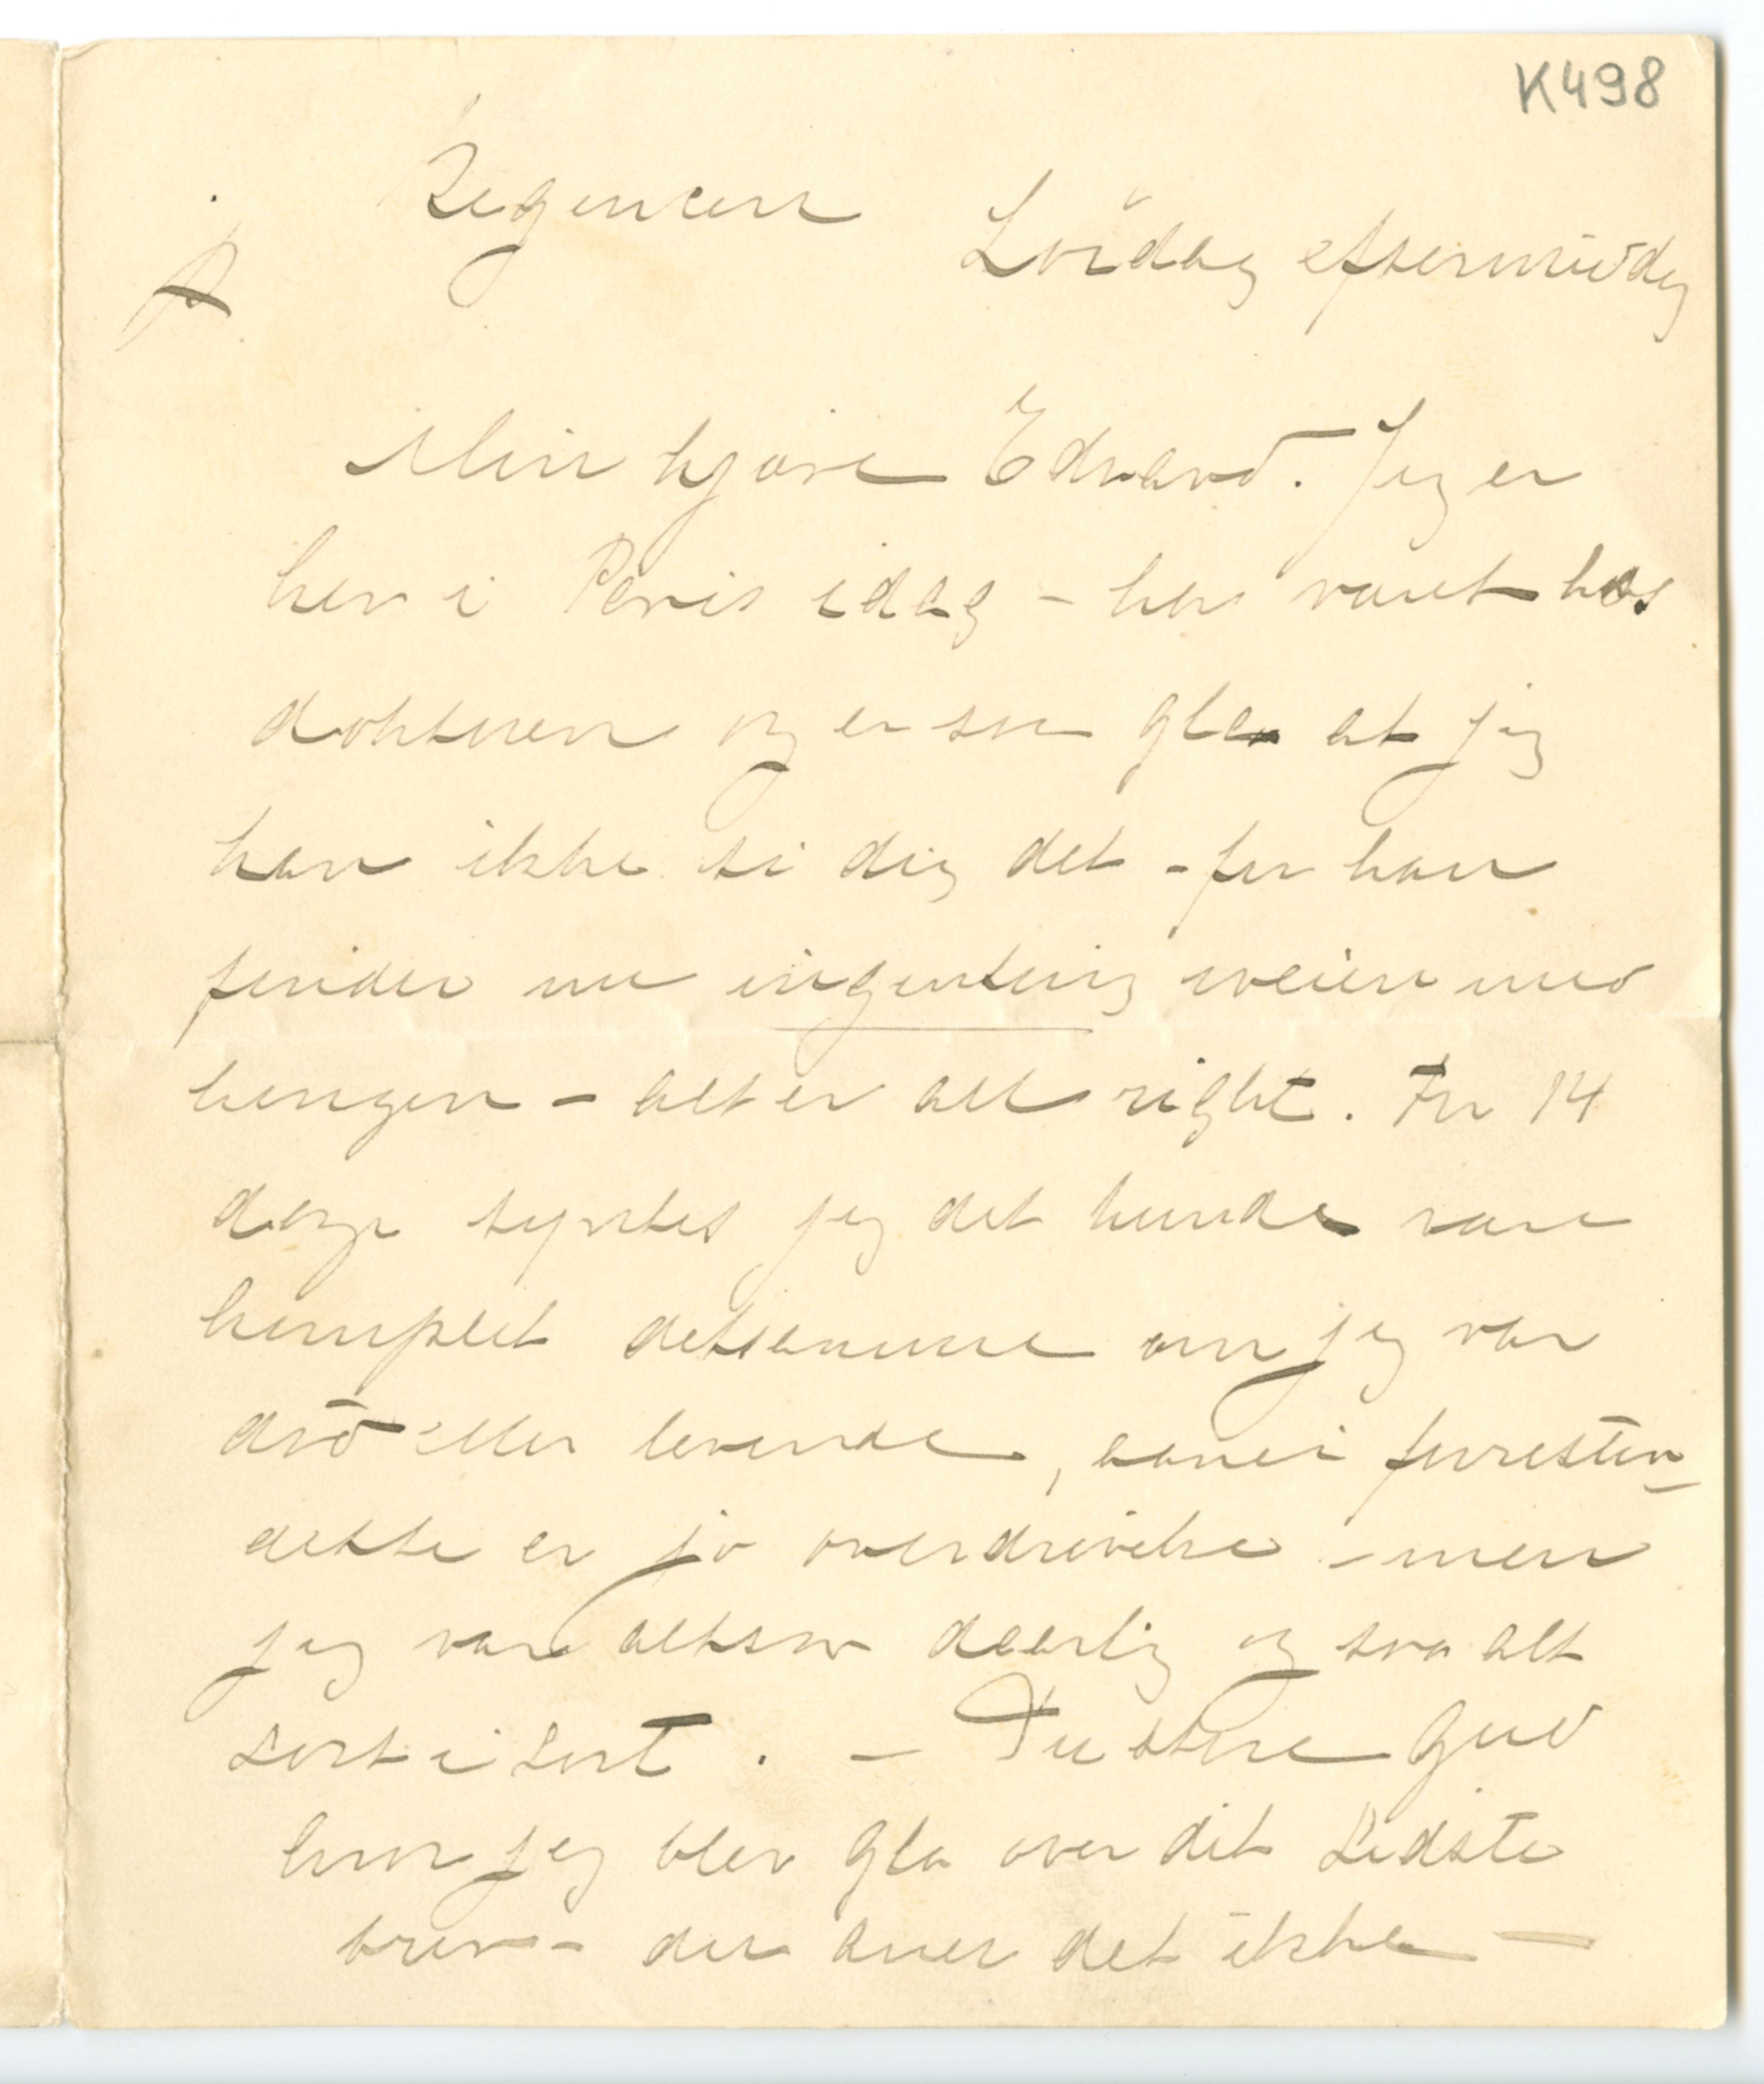 K498
Regencen
Lördag eftermiddag
Min kjære Edvard. Jeg er
her i Paris idag – har været hos
doktoren og er saa gla at jeg
kan ikke si dig det – for han
finder nu ingenting iveien med
lungen – alt er all right. For 14
dage syntes jeg det kunde være
komplet detsamme om jeg var
död eller levende, aanei forresten
dette er jo overdrivelse – men
jeg var altsaa daarlig og saa alt
sort i sort. – Du store Gud
hvor jeg blev gla over dit sidste
brev – du aner det ikke –